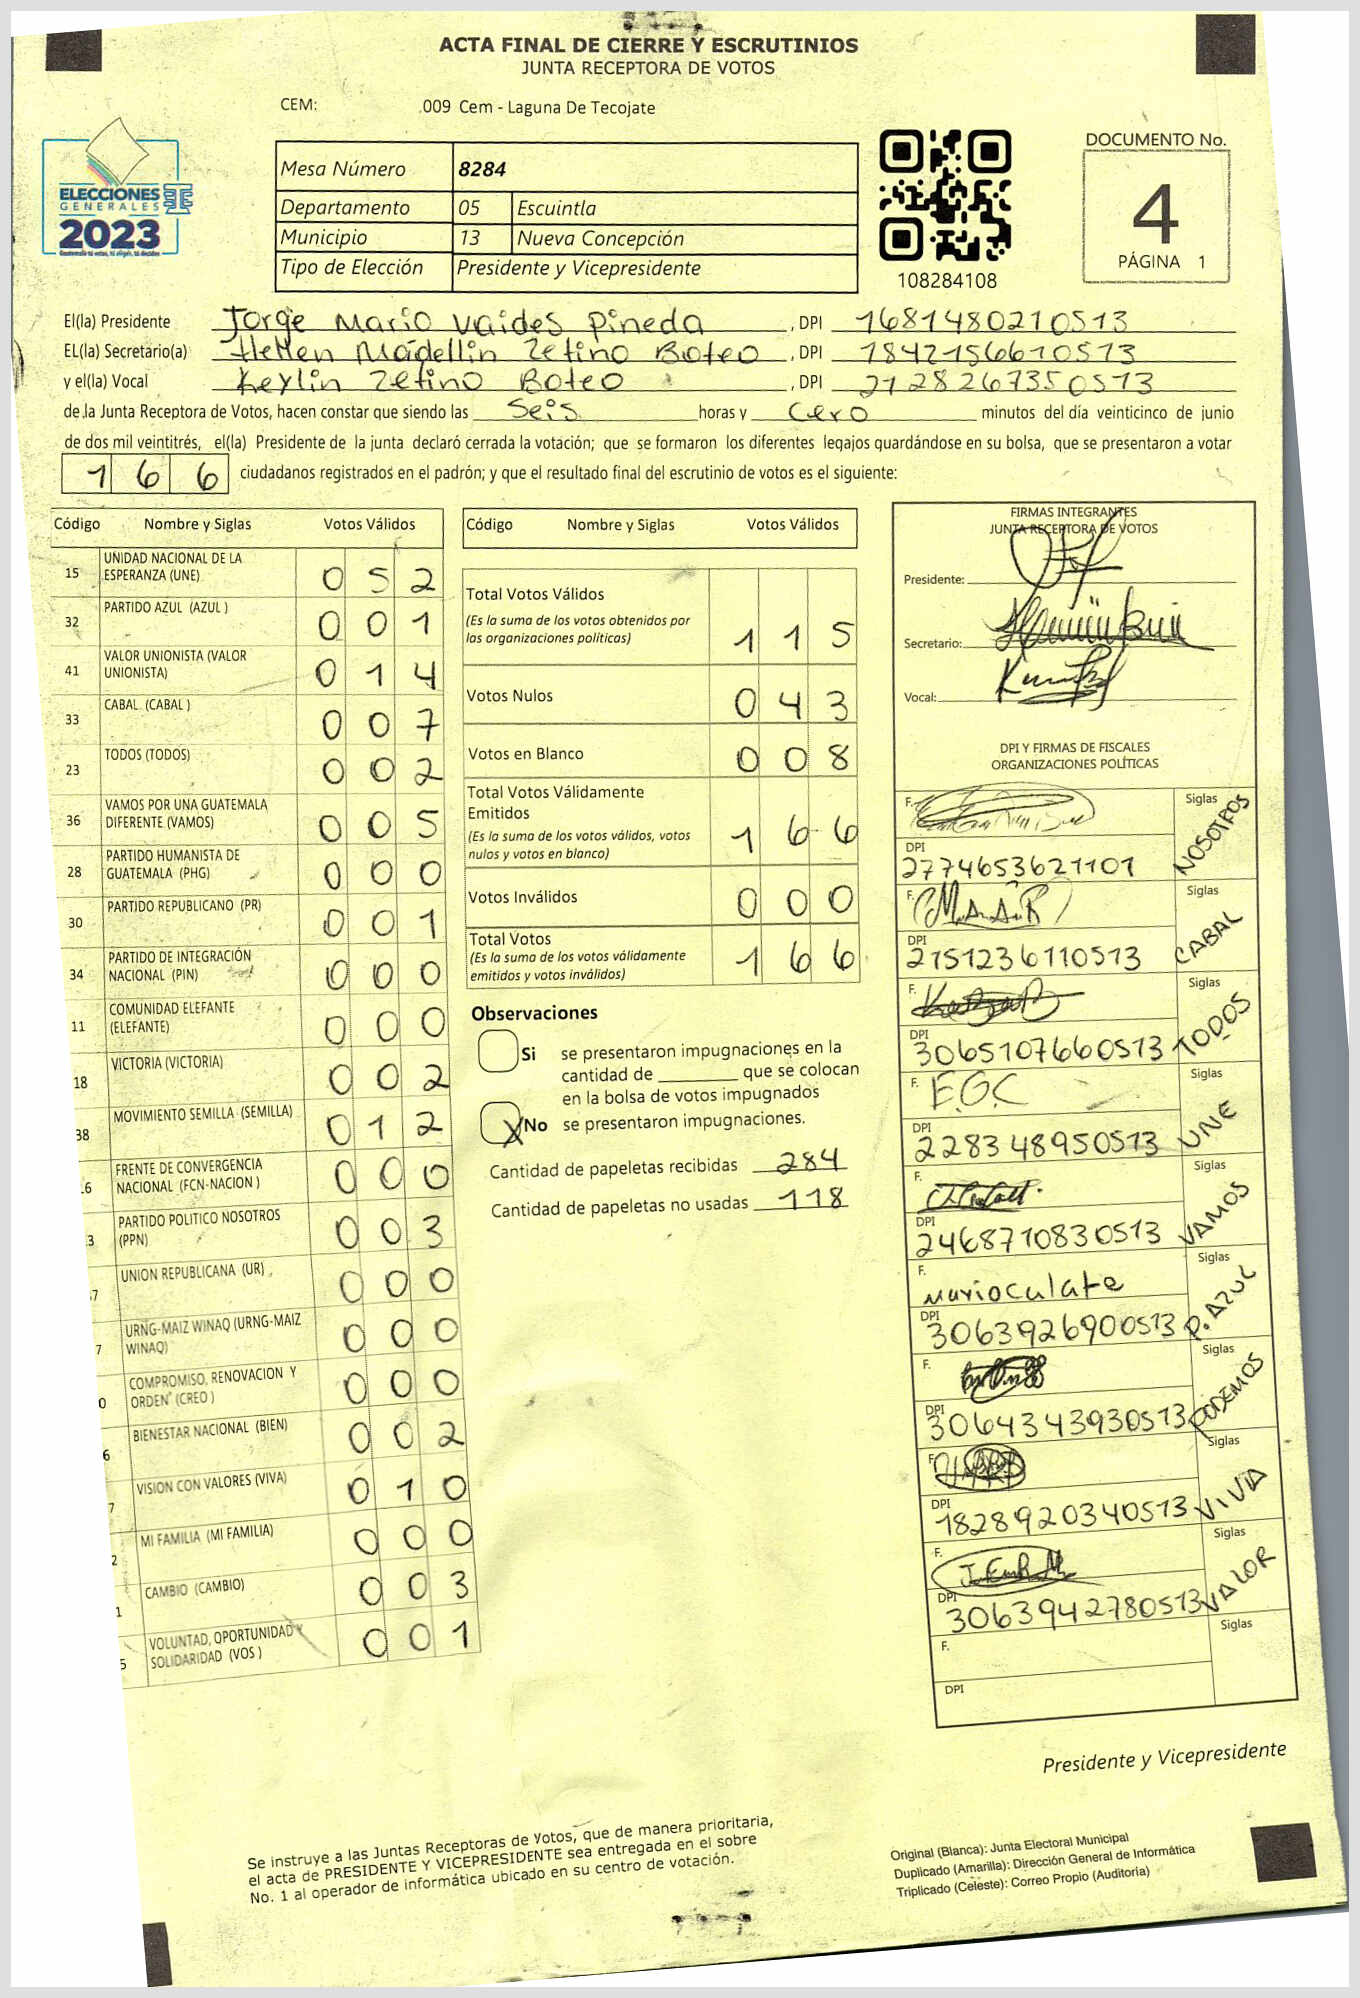 ACTA FINAL DE CIERRE Y ESCRUTINIOS
JUNTA RECEPTORA DE VOTOS
CEM: .009 Cem - Laguna De Tecojate
ELECCIONES
GENERALES
2023
Mesa Número 8284
Departamento 05 Escuintla
Municipio 13 Nueva Concepción
Tipo de Elección Presidente y Vicepresidente
108284108
DOCUMENTO No.
4
PÁGINA 1
El(la) Presidente Jorge Mario Valdes Pineda , DPI 1681480210513
EL(la) Secretario(a) Madellin Zetino Boteo , DPI 1842156610513
y el(la) Vocal Keylin Zetino Boteo , DPI 2128267350513
de la Junta Receptora de Votos, hacen constar que siendo las Seis horas y Cero minutos del día veinticinco de junio
de dos mil veintitrés, el(la) Presidente de la junta declaró cerrada la votación; que se formaron los diferentes legajos guardándose en su bolsa, que se presentaron a votar
1 6 6 ciudadanos registrados en el padrón; y que el resultado final del escrutinio de votos es el siguiente:
Código Nombre y Siglas Votos Válidos
15 UNIDAD NACIONAL DE LA ESPERANZA (UNE) 0 5 2
32 PARTIDO AZUL (AZUL ) 0 0 1
41 VALOR UNIONISTA (VALOR UNIONISTA) 0 1 4
33 CABAL (CABAL ) 0 0 7
23 TODOS (TODOS) 0 0 2
36 VAMOS POR UNA GUATEMALA DIFERENTE (VAMOS) 0 0 5
28 PARTIDO HUMANISTA DE GUATEMALA (PHG) 0 0 0
30 PARTIDO REPUBLICANO (PR) 0 0 1
34 PARTIDO DE INTEGRACIÓN NACIONAL (PIN) 0 0 0
11 COMUNIDAD ELEFANTE (ELEFANTE) 0 0 0
18 VICTORIA (VICTORIA) 0 0 2
38 MOVIMIENTO SEMILLA (SEMILLA) 0 1 2
6 FRENTE DE CONVERGENCIA NACIONAL (FCN-NACION ) 0 0 0
3 PARTIDO POLITICO NOSOTROS (PPN) 0 0 3
7 UNION REPUBLICANA (UR) 0 0 0
7 URNG-MAIZ WINAQ (URNG-MAIZ WINAQ) 0 0 0
0 COMPROMISO, RENOVACION Y ORDEN (CREO ) 0 0 0
6 BIENESTAR NACIONAL (BIEN) 0 0 2
7 VISION CON VALORES (VIVA) 0 1 0
2 MI FAMILIA (MI FAMILIA) 0 0 0
1 CAMBIO (CAMBIO) 0 0 3
5 VOLUNTAD, OPORTUNIDAD Y SOLIDARIDAD (VOS ) 0 0 1
Código Nombre y Siglas Votos Válidos
Total Votos Válidos
(Es la suma de los votos obtenidos por
las organizaciones políticas) 1 1 5
Votos Nulos 0 4 3
Votos en Blanco 0 0 8
Total Votos Válidamente
Emitidos
(Es la suma de los votos válidos, votos
nulos y votos en blanco) 1 6 6
Votos Inválidos 0 0 0
Total Votos
(Es la suma de los votos válidamente
emitidos y votos inválidos) 1 6 6
Observaciones
Si se presentaron impugnaciones en la
cantidad de ________ que se colocan
en la bolsa de votos impugnados
X No se presentaron impugnaciones.
Cantidad de papeletas recibidas 284
Cantidad de papeletas no usadas 118
FIRMAS INTEGRANTES
JUNTA RECEPTORA DE VOTOS
Presidente:
Secretario:
Vocal:
DPI Y FIRMAS DE FISCALES
ORGANIZACIONES POLÍTICAS
F. Siglas NOSOTROS
DPI 2774653621101
F. Siglas CABAL
DPI 2151236110513
F. Siglas TODOS
DPI 3065107660513
F. E.G.C Siglas UNE
DPI 228348950513
F. Siglas VAMOS
DPI 2468710830513
F. Marioculate Siglas P. AZUL
DPI 3063926900513
F. Siglas PODEMOS
DPI 3064343930513
F. Siglas VIVA
DPI 1828920340513
F. Siglas VALOR
DPI 3063942780513
F. Siglas
DPI
Presidente y Vicepresidente
Se instruye a las Juntas Receptoras de Votos, que de manera prioritaria,
el acta de PRESIDENTE Y VICEPRESIDENTE sea entregada en el sobre
No. 1 al operador de informática ubicado en su centro de votación.
Original (Blanca): Junta Electoral Municipal
Duplicado (Amarilla): Dirección General de Informática
Triplicado (Celeste): Correo Propio (Auditoria)